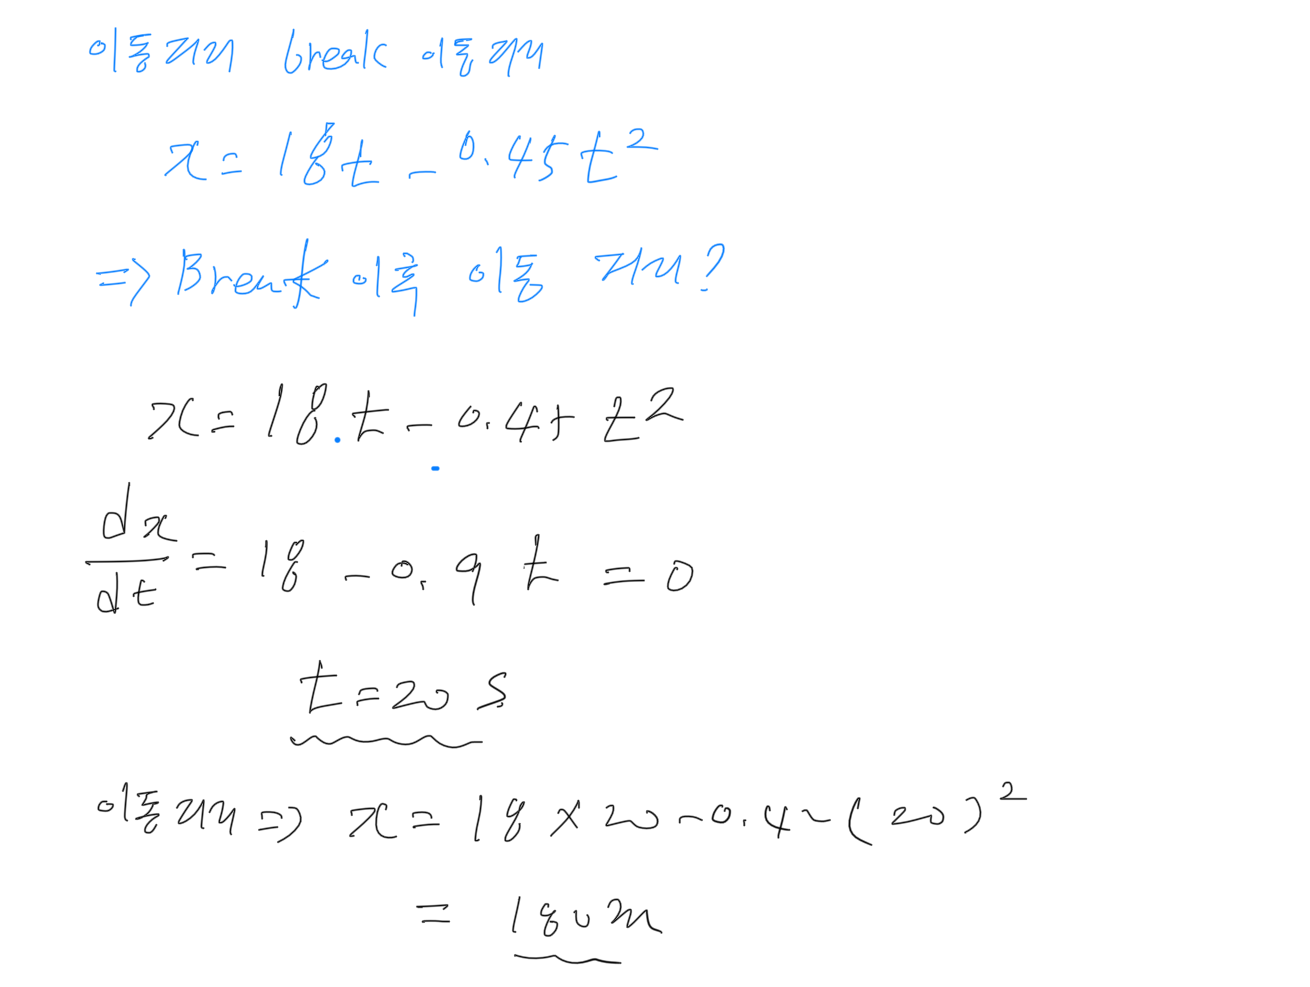 이동거리 break 이동거리
x = 18t - 0.45t²
=> Break 이후 이동 거리?
x = 18.t - 0.45 t²
dx/dt = 18 - 0.9 t = 0
t = 20 s
이동거리 => x = 18 × 20 - 0.45 (20)²
= 180m